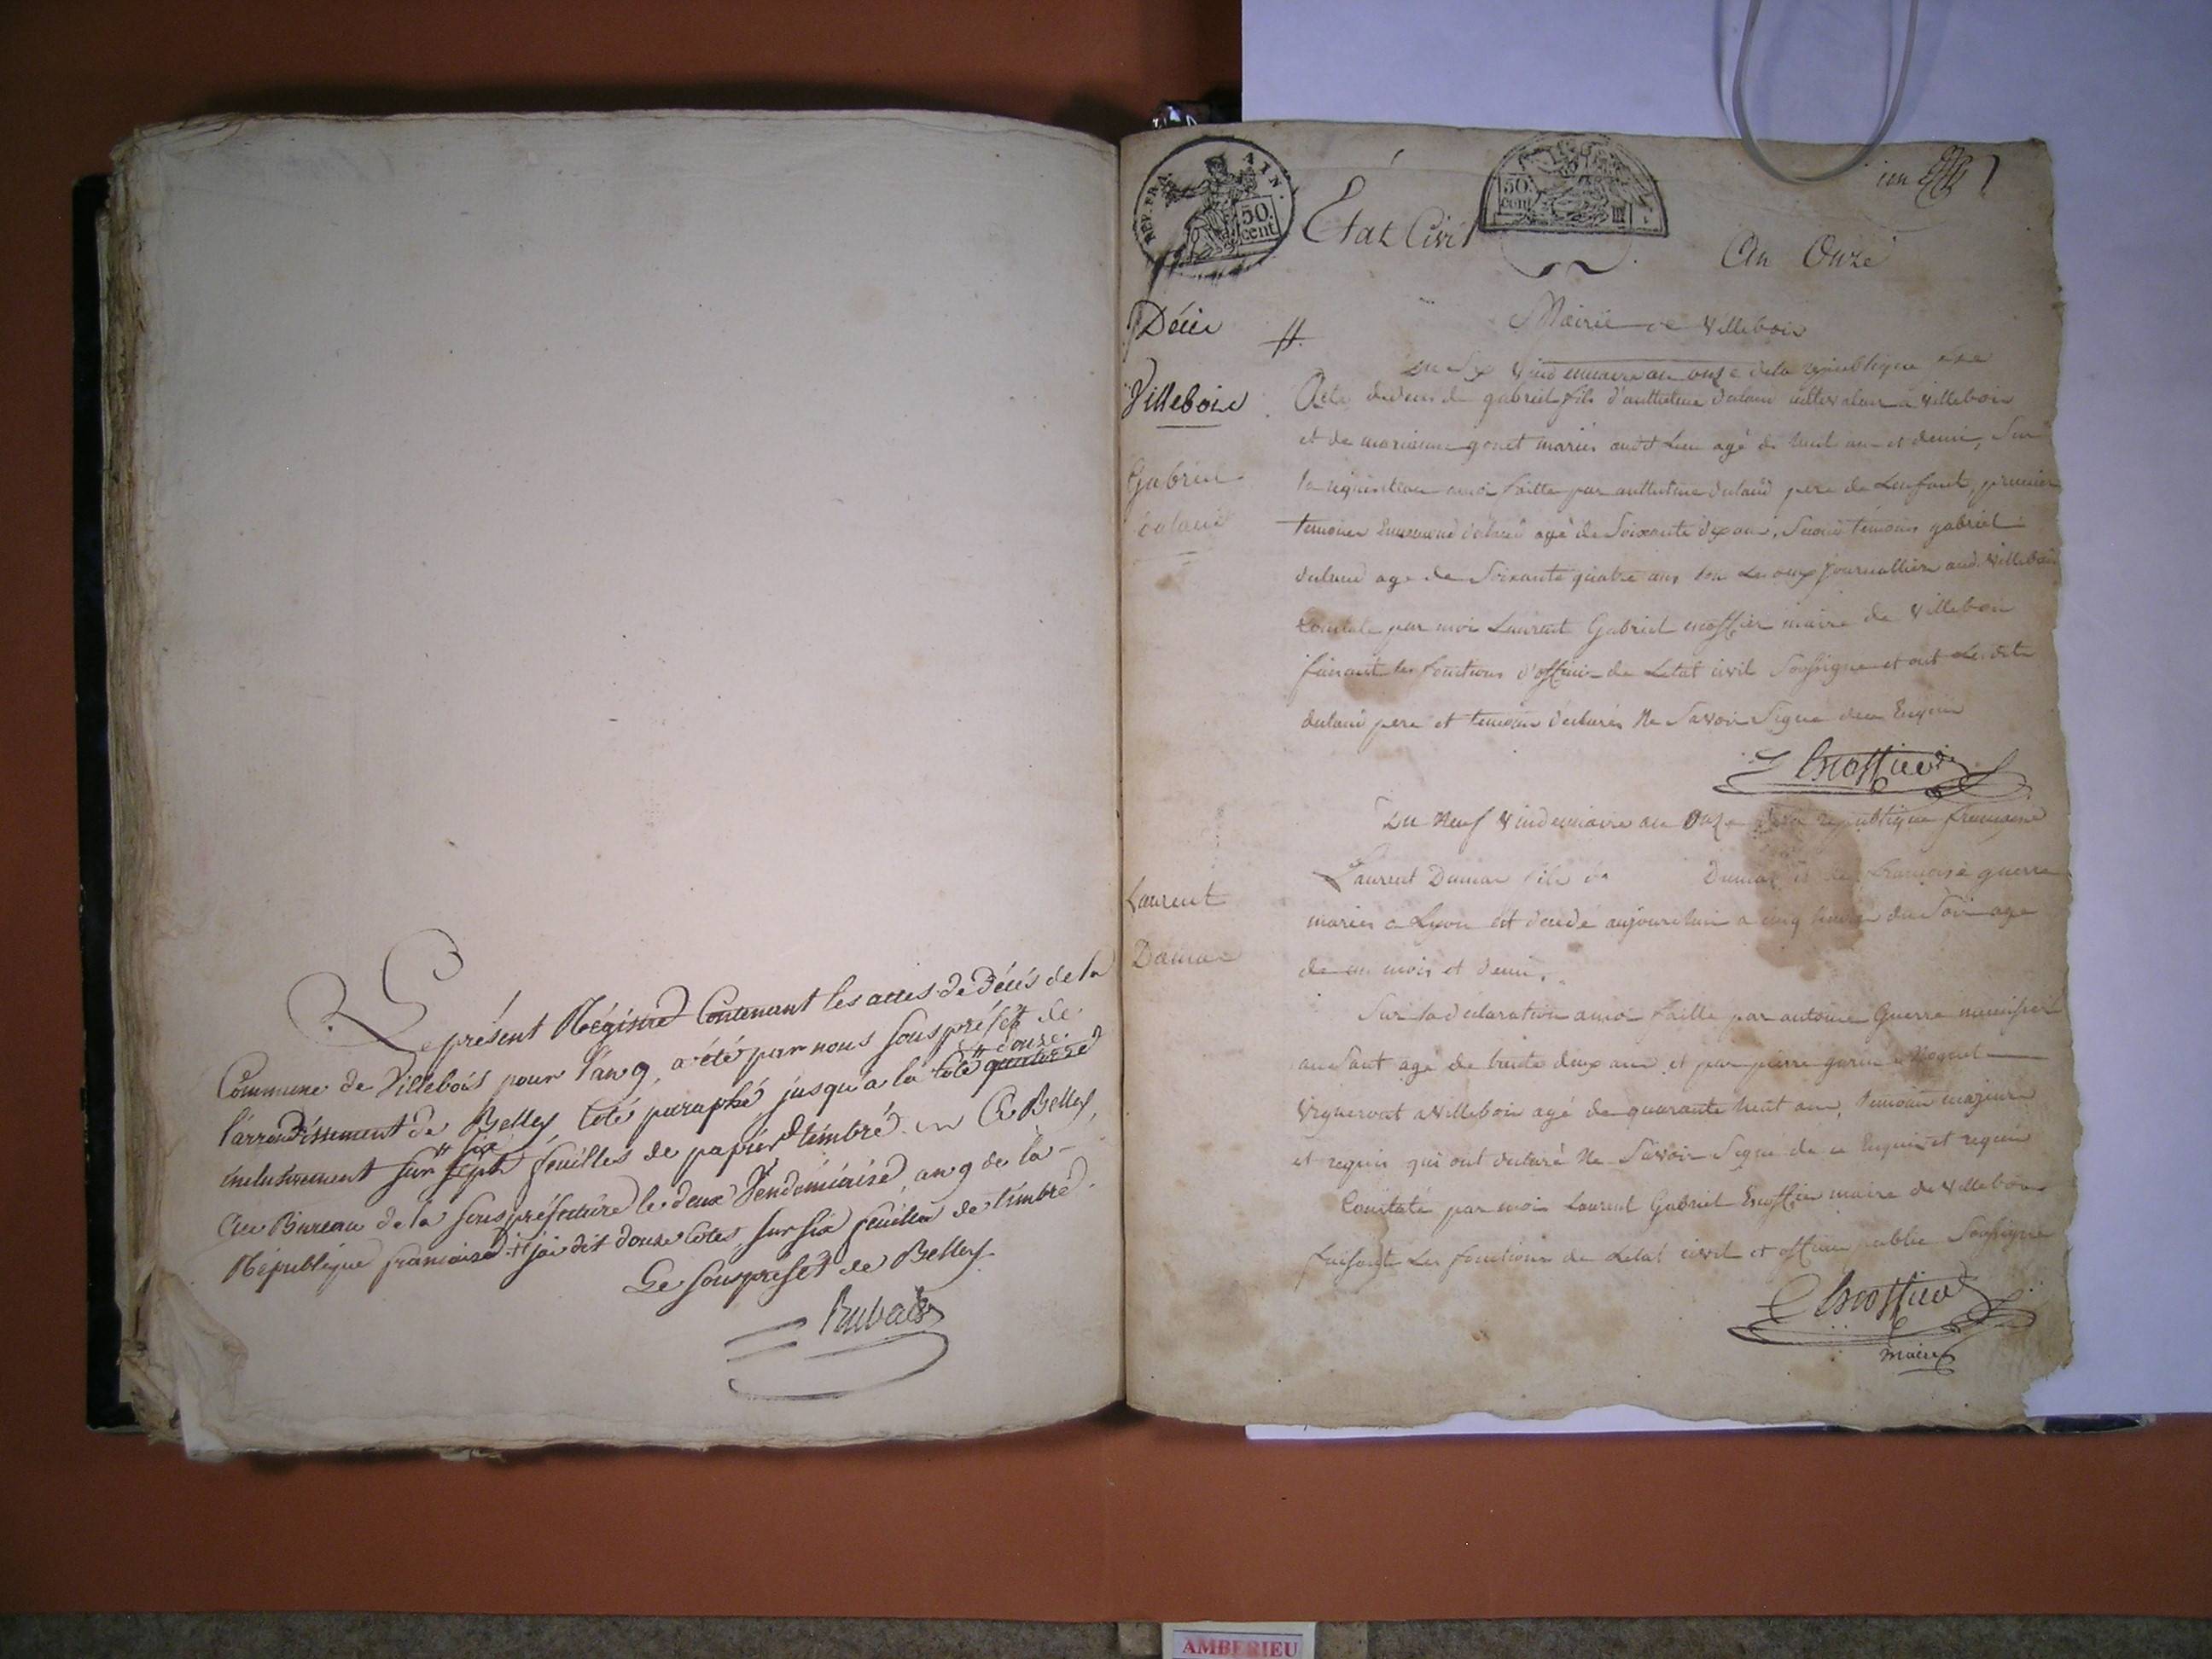 Le présent Régistre Contenant les actes de Décés de la
Commune de Villebois pour l'an 9, a été par nous souspréfet de
l'arrondissement de Belley Coté paraphé jusqu'a la Cote quatorze douze
inclusivement sur sept six feuilles de papier timbré. A Belley,
Au Bureau de la souspréfecture le deux Vendémiaire an 9 de la
République francaise # j'ai dit douze Cotes sur six feuilles de timbre.
Le souspréfet de Belley
REP. FRA. AIN.
50. cent
Etat Civil
50. cent
An Onze
Décès
Villebois
Gabriel
dulaud
Mairie de Villebois
vendemiaire an onze de la republique
Acte de deces de gabriel fils d'anthelme cultivateur a villebois
et de marianne gonet mariés audit Lieu agé de huit ans et demi, Sur
la requisition a moi faitte par anthelme pere de Lenfant, premier
temoin agé de Soixante dix ans, Second temoins gabriel
agé de Soixante quatre ans tou Les deux journallier aud. Villebois
Constaté par moi Laurent Gabriel escoffier maire de Villebois
faisant les fonctions d'officier de Letat civil Soussigné et ont Les dits
pere et temoins déclarés Ne Savoir Signe
Escoffier
Laurent
Dumas
Du Neuf Vindemiaire an Onze de la republique francaise
Laurent Dumas fils de Dumas et de francoise guerre
mariés a Lyon est décédé aujourdhui a cinq heures du Soir age
de un mois et demi.
Sur la déclaration a moi faitte par antoine Guerre
agé de trente deux ans et par pierre
Vigneront a Villebois agé de quarante huit ans, temoins majeurs
et requis qui ont déclaré Ne Savoir Signé de ce Enquis et requis
Constaté par moi Laurent Gabriel Escoffier maire de Villebois
faisant Les fonctions de Letat civil et officier public Soussigné
Escoffier
maire
AMBERIEU